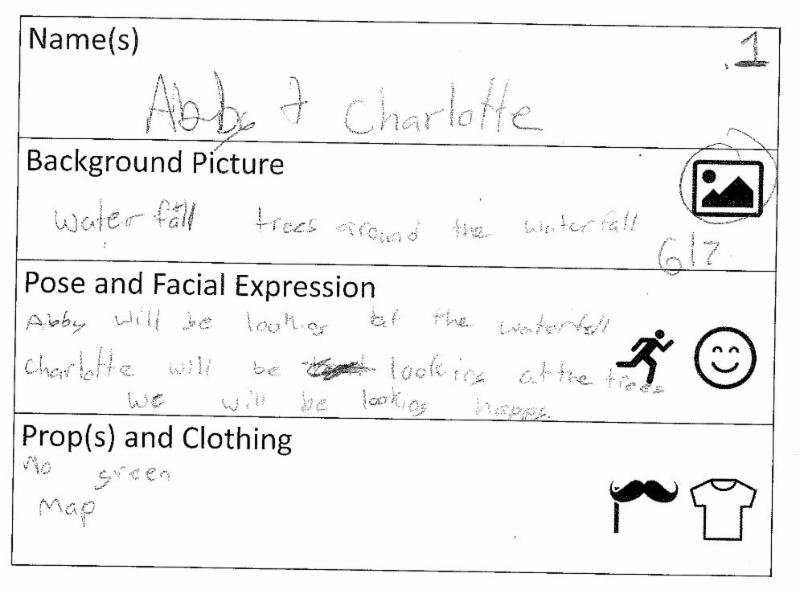 Name(s)
.1
Abby & Charlotte
Background Picture
Waterfall trees around the waterfall
6/7
Pose and Facial Expression
Abby will be looking at the waterfall
Charlotte will be looking at the trees
We will be looking happy.
Prop(s) and Clothing
No green
Map